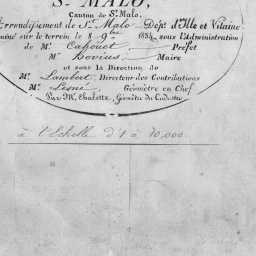 St MALO,
Canton de St Malo,
Arrondissement de St Malo Dépt d'Ille et Vilaine
miné sur le terrein le 8 9bre 1834, sous l'Administration
de Mr Cahouet Préfet
Mr Hovius Maire
et sous la Direction de
Mr Lambert, Directeur des Contributions
Mr Lesné, Géomètre en Chef
Par Mr Chalette, Géomètre du Cadastre
à l'Echelle d'1 à 10,000.